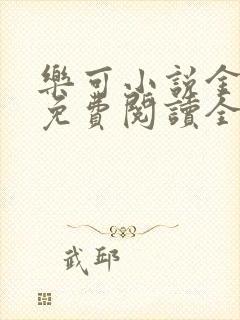 樂可小說全
免費閱讀全
武邱